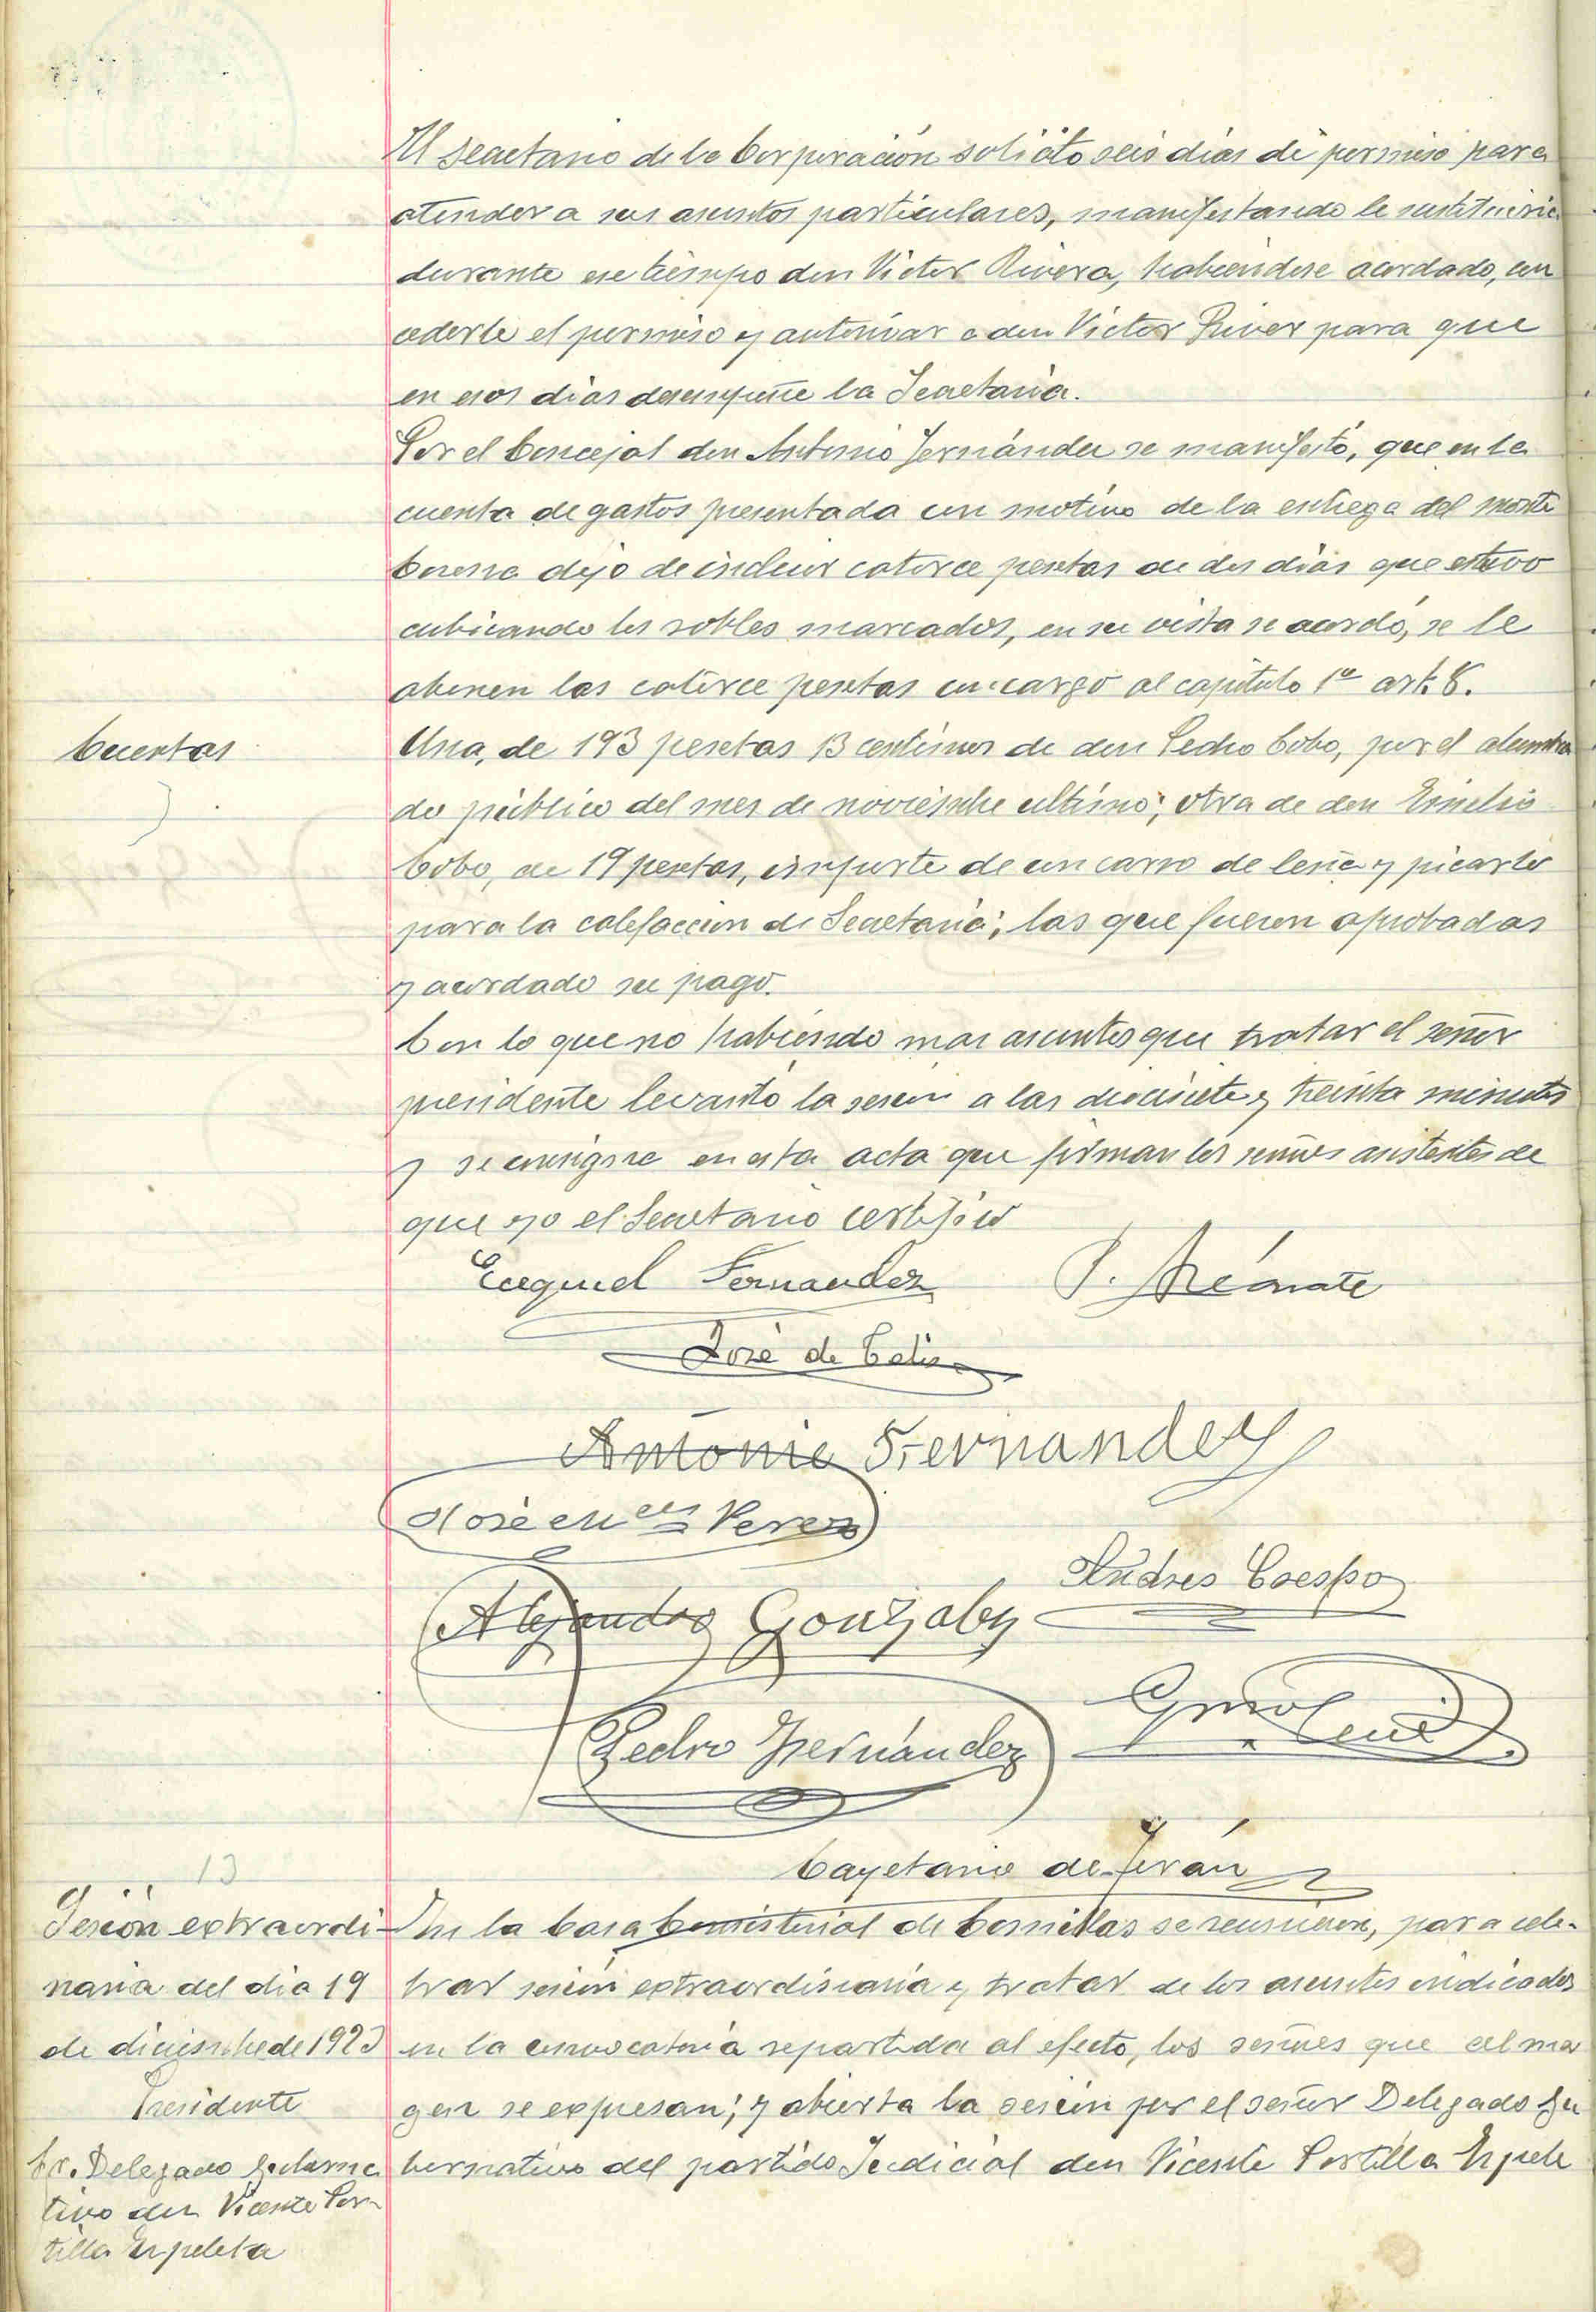 El Secretario de la Corporación solicito seis dias de permiso para
atender a sus asuntos particulares, manifestando le sustituiria
durante ese tiempo don Victor Rivera, habiendose acordado, con
cederle el permiso y autorizar a don Victor River para que
en esos dias desempeñe la Secretaria.
Por el Concejal don Antonio Fernández se manifestó, que en la
cuenta de gastos presentada con motivo de la entrega del monte
dejo de incluir catorce pesetas de dos dias que estuvo
cubicando los robles marcados, en su vista se acordó, se le
abonen las catorce pesetas con cargo al capitulo 1º art. 8.
Cuentas
Una, de 193 pesetas 13 centimos de don Pedro Cobo, por el alumbra
do público del mes de noviembre ultimo; otra de don Emilio
Cobo, de 19 pesetas, importe de un carro de leña y picarlo
para la calefaccion de Secretaria; las que fueron aprobadas
y acordado su pago.
Con lo que no habiendo mas asuntos que tratar el señor
presidente levantó la sesion a las diecisiete y treinta minutos
y se consigna en esta acta que firman los señores asistentes de
que yo el Secretario certifico
Ezequiel Fernandez
José de Celis
Antonio Fernandez
José Mª Perez
Andres Crespo
Alejandro Gonzalez
Pedro Fernández
Cayetano de Terán
13
Sesión extraordi-
naria del dia 19
de diciembre de 1923
Presidente
Sr. Delegado Guberna
tivo don Vicente Por-
tilla Ezpeleta
En la Casa Consistorial de Comillas se reunieron, para cele-
brar sesión extraordinaria y tratar de los asuntos indicados
en la convocatoria repartida al efecto, los señores que al mar
gen se expresan; y abierta la sesión por el señor Delegado Gu
bernativo del partido Judicial don Vicente Portilla Ezpele